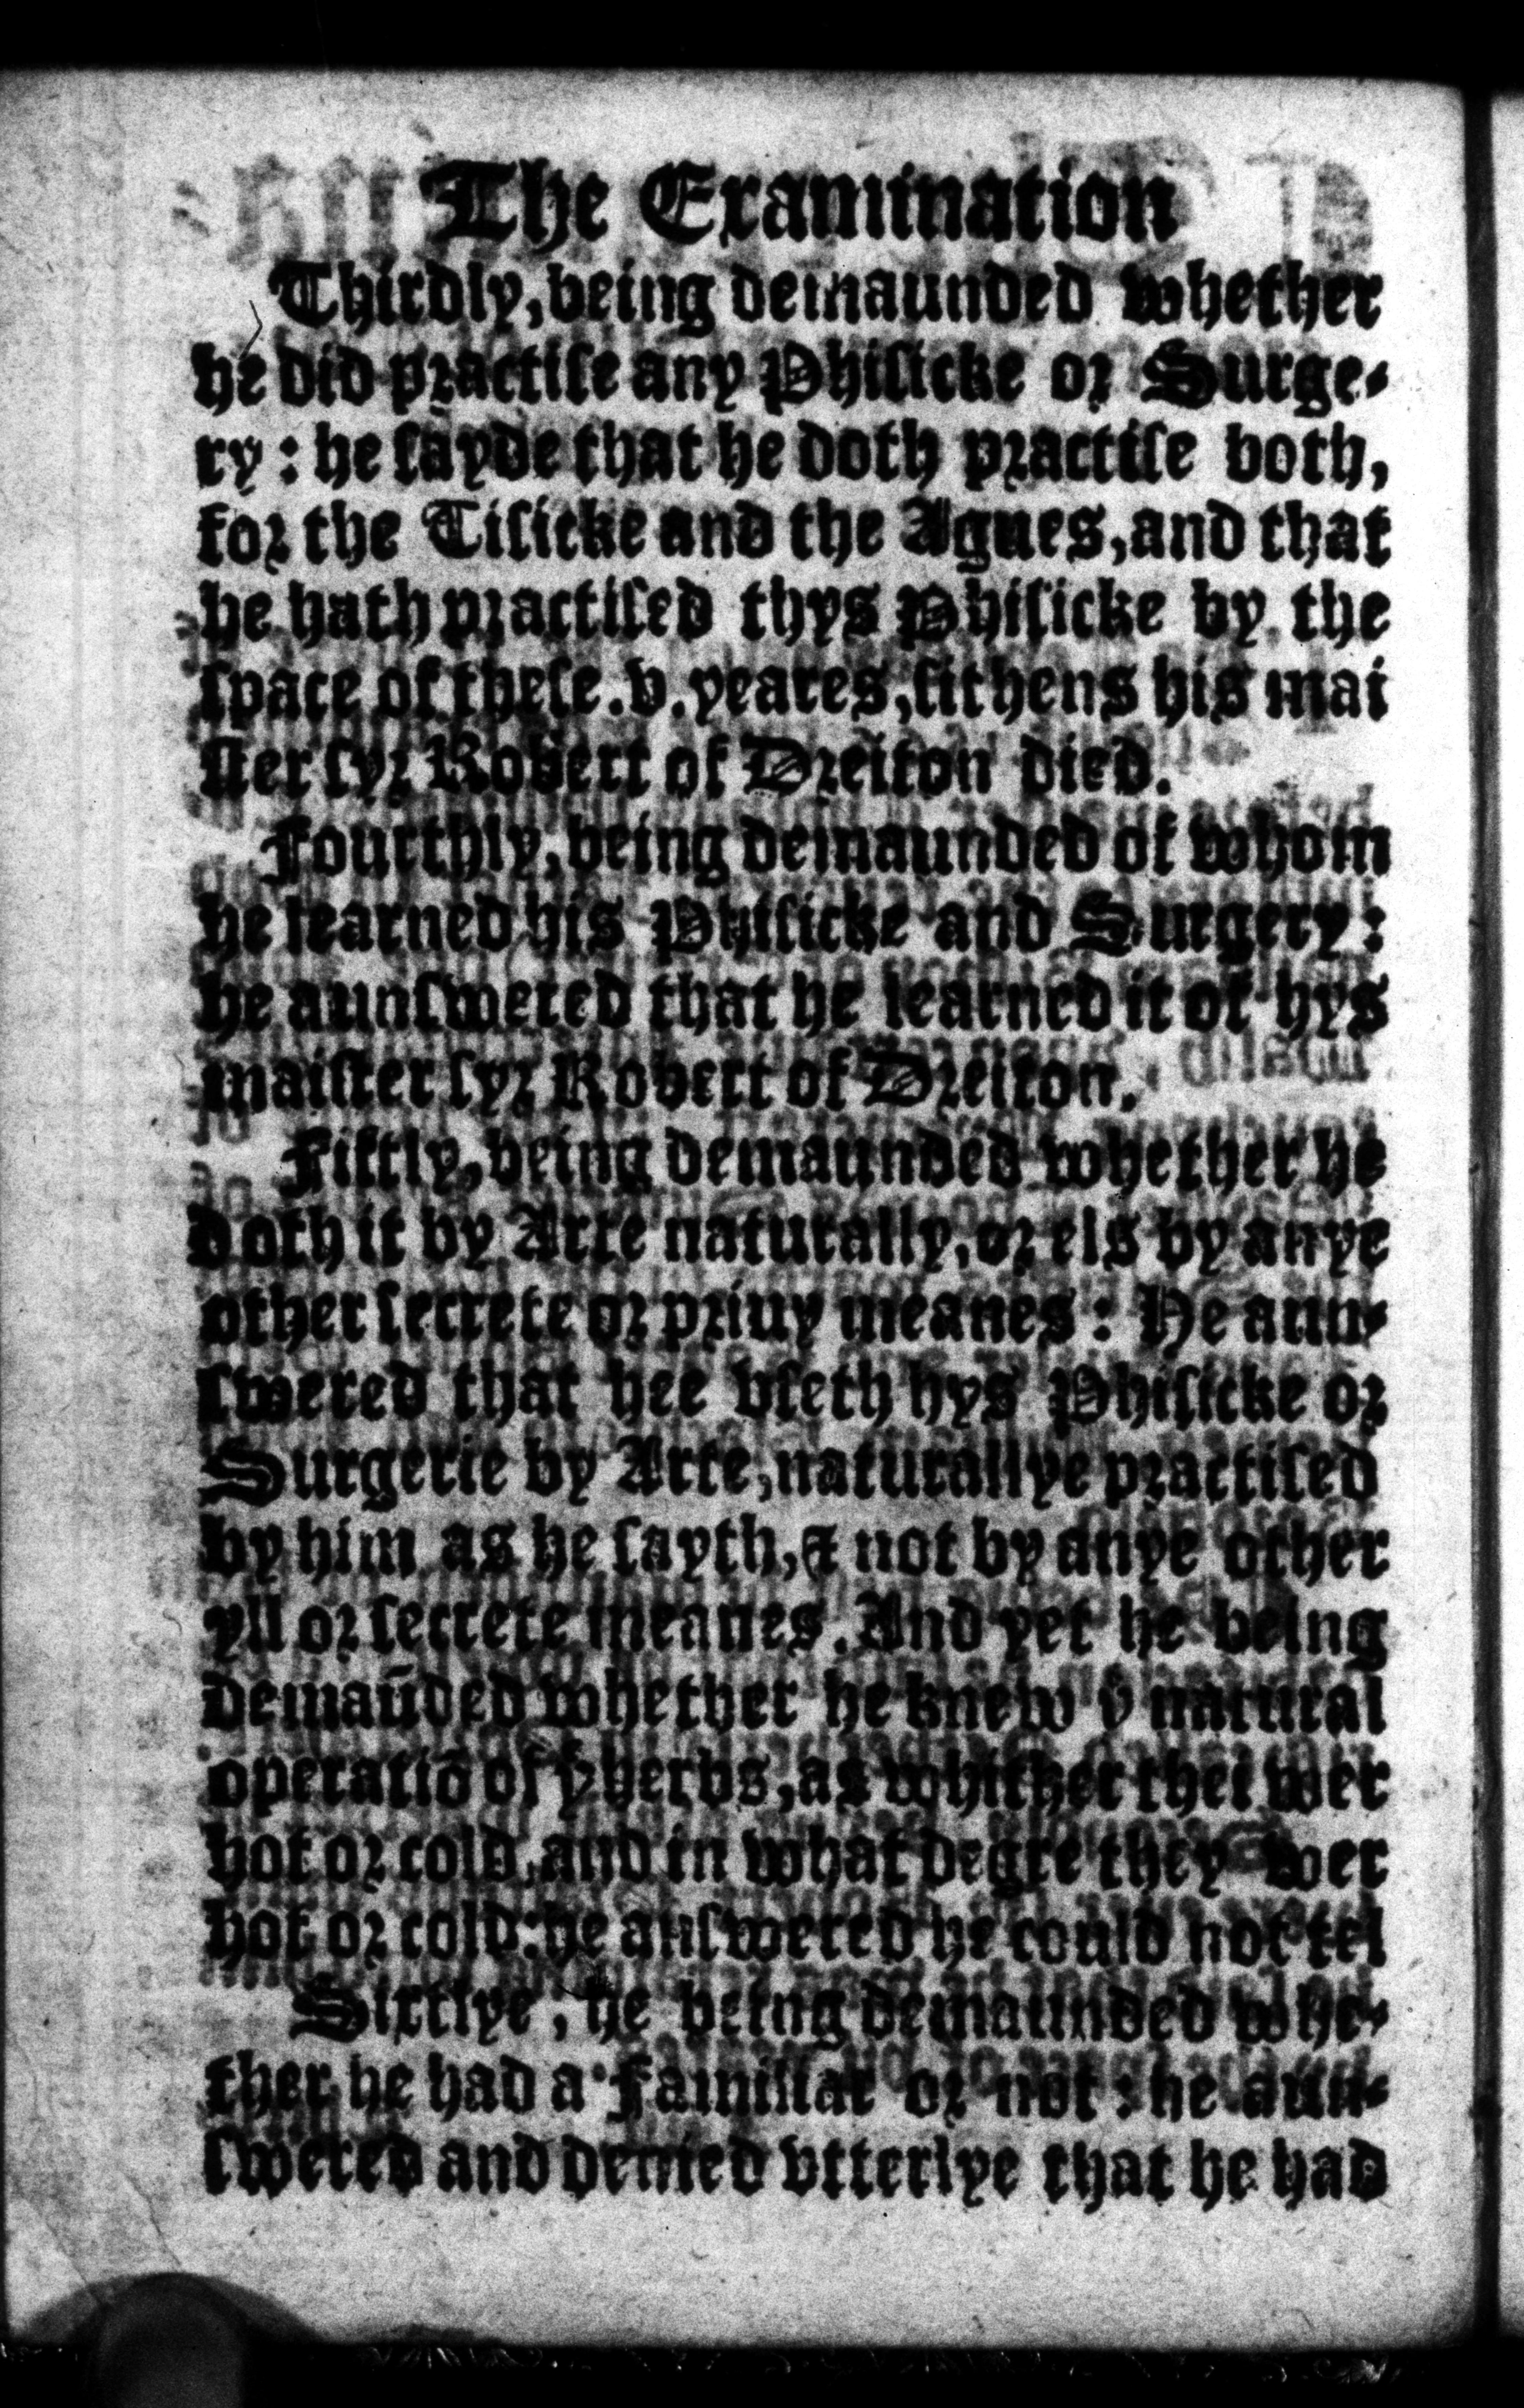 The Examination
Thirdly, being demaunded whether
he did practiſe any Phiſicke or Surge-
ry: he ſayde that he doth practiſe both,
for the Tiſicke and the Agues, and that
he hath practiſed thys Phiſicke by the
ſpace of theſe .v. yeares, ſithens his mai
ſter ſyr Robert of Dreiton died.
Fourthly, being demaunded of whom
he learned his Phiſicke and Surgery:
he aunſwered that he learned it of hys
maiſter ſyr Robert of Dreiton.
Fiftly, being demaunded whether he
doth it by Arte naturally, or els by anye
other ſecrete or priuy meanes: He aun-
ſwered that hee vſeth hys Phiſicke or
Surgerie by Arte, naturallye practiſed
by him as he ſayth, & not by anye other
yll or ſecrete meanes. And yet he being
demaūded whether he knew yͤ natural
operatiō of yͤ herbs, as whither thei wer
hot or cold, and in what degre they wer
hot or cold: he anſwered he could not tel
Sixtlye, he being demaunded whe-
ther he had a Familiar or not: he aun-
ſwered and denied vtterlye that he had